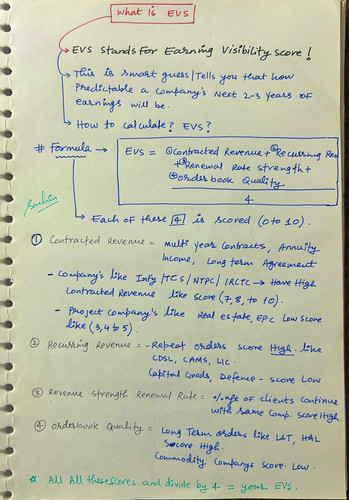 What is EVS
→ EVS stands For Earning Visibility Score!
→ This is smart guess/Tells you that how
Predictable a Company's Next 2-3 years of
earnings will be.
→ How to calculate? EVS?
# Formula →
EVS = ①Contracted Revenue + ②Recurring Rev
+ ③Renewal Rate strength +
④orderbook Quality
4
Sachin
→ Each of these [4] is scored (0 to 10).
① Contracted Revenue = multi year Contracts, Annuity
Income, Long term Agreement
- Company's like Infy/TCS/NTPC/IRCTC → Have High
Contracted Revenue like score (7, 8, to 10).
- Project Company's like Real estate, EPC Low Score
like (3, 4 to 5).
② Recurring Revenue = - Repeat orders score High. like
CDSL, CAMS, LIC.
Capital Goods, Defence - score Low
③ Revenue Strength Renewal Rate = %age of clients Continue
with same Comp. Score High.
④ Orderbook Quality = Long Term orders like L&T, HAL
Score High.
Commodity Companys score Low.
* All All these scores and divide by 4 = your EVS.